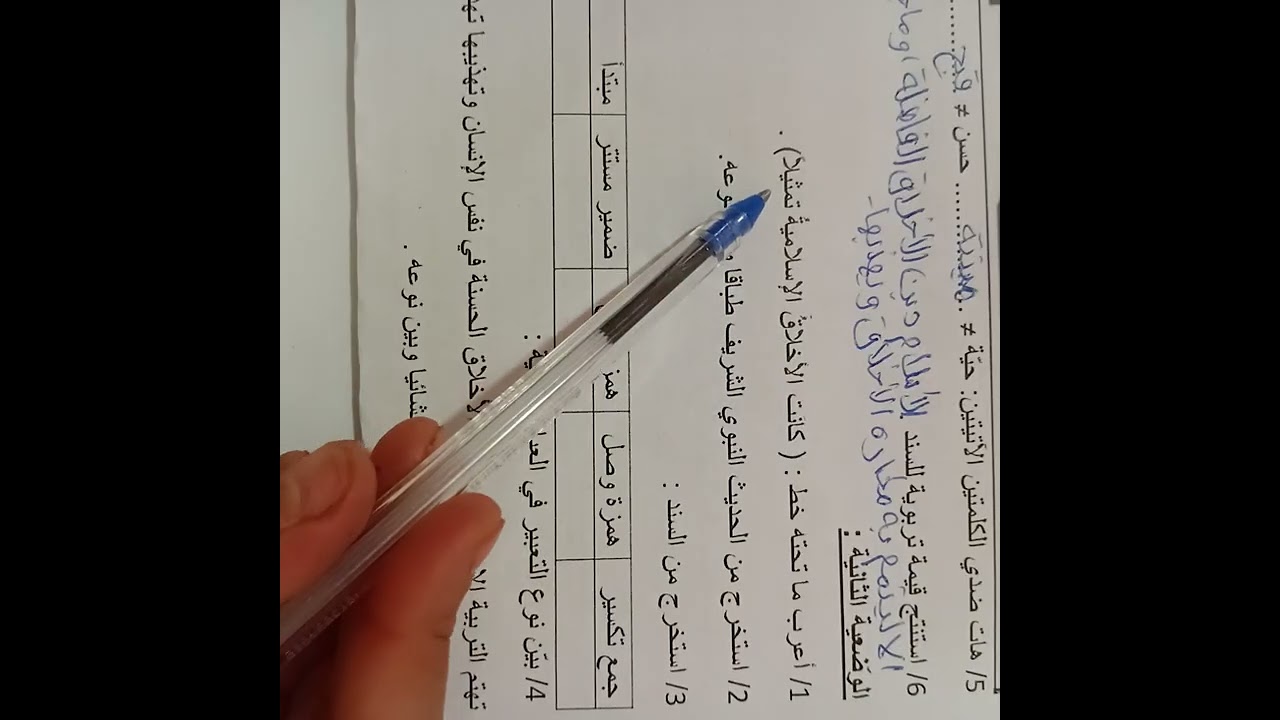 5/ هات ضدي الكلمتين الآتيتين: حيّة ≠ ميتة ........ حسن ≠ قبح ........
6/ استنتج قيمة تربوية للسند الإسلام دين الأخلاق الفاضلة
مكارم الأخلاق ويهذبها-
الوضعية الثانية :
1/ أعرب ما تحته خط : ( كانت الأخلاقُ الإسلاميةُ تمثيلاً) .
2/ استخرج من الحديث النبوي الشريف طباقا
3/ استخرج من السند :
جمع تكسير همزة وصل ضمير مستتر مبتدأ
4/ بيّن نوع التعبير في
تهتم التربية الأخلاق الحسنة في نفس الإنسان وتهذيبها
وبين نوعه .